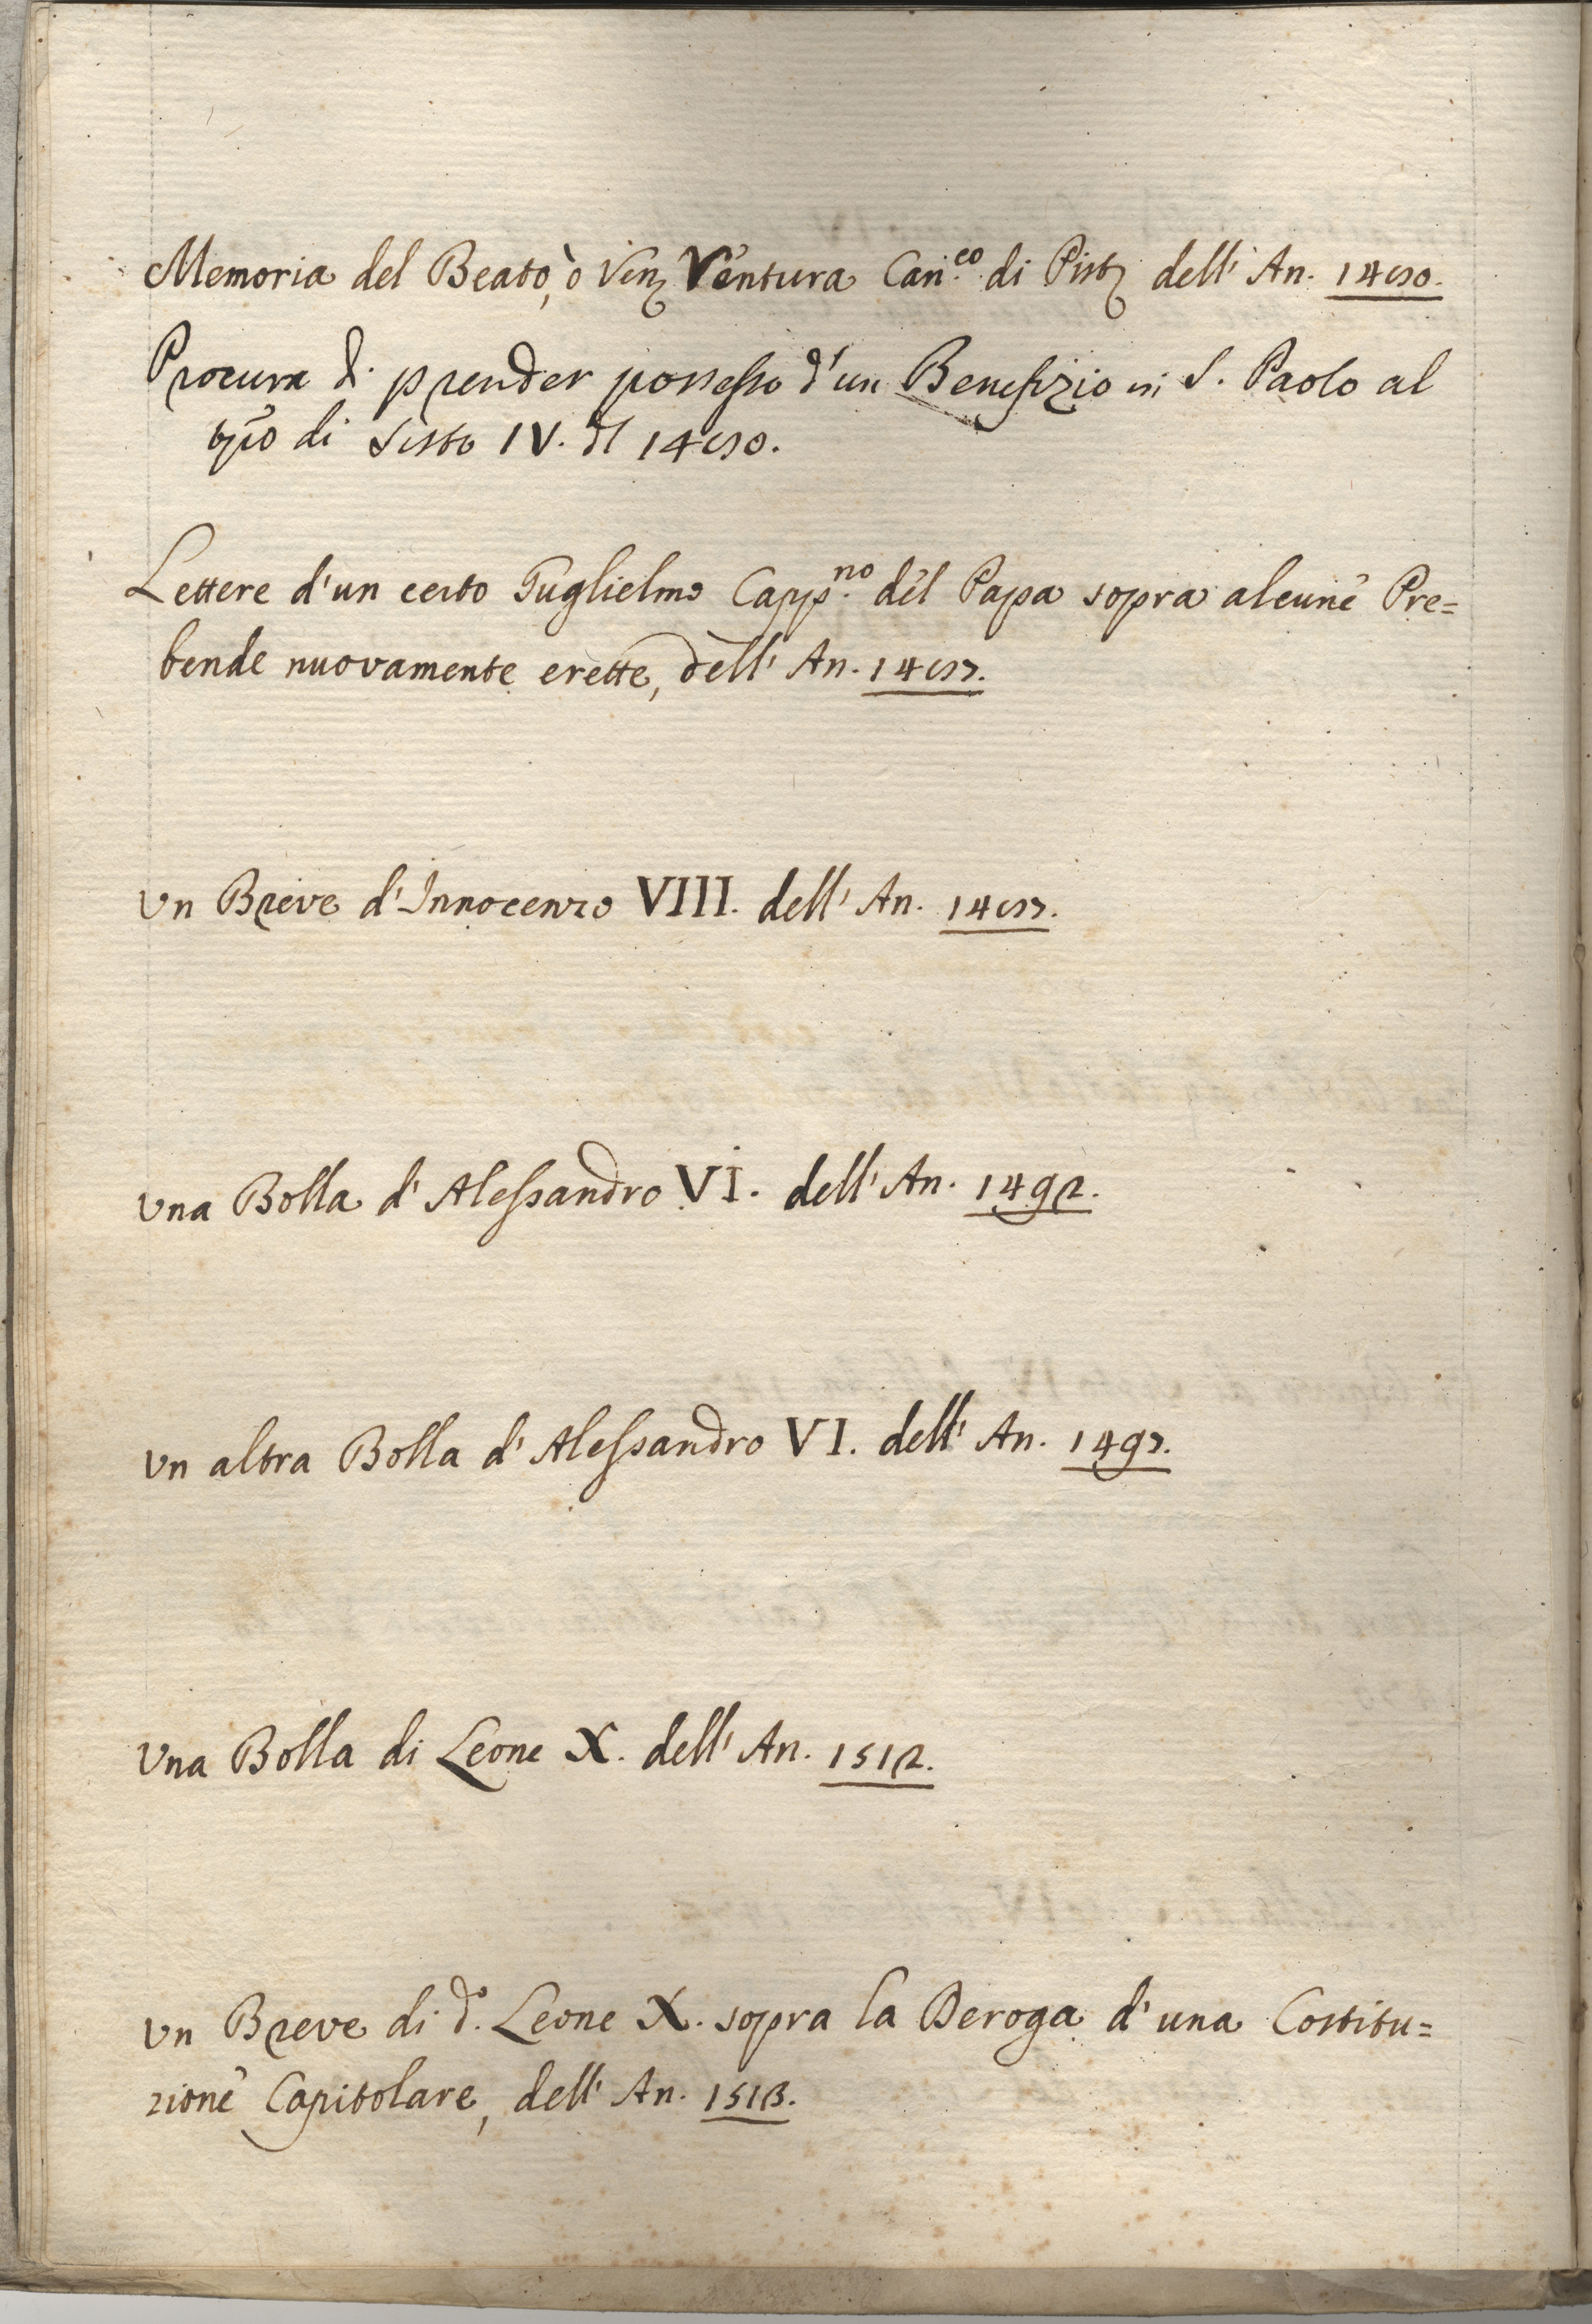 Memoria del Beato, ò Ven. Ventura Can.co di Pist. dell' An. 1480.
Procura di prender possesso d'un Benefizio in S. Paolo al
tpo di Sisto IV. dl 1480.
Lettere d'un certo Guglielmo Capp.no del Papa sopra alcune Pre=
bende nuovamente erette, dell' An. 1487.
Un Breve d'Innocenzo VIII. dell' An. 1487.
Una Bolla d'Alessandro VI. dell' An. 1492.
Un altra Bolla d'Alessandro VI. dell' An. 1497.
Una Bolla di Leone X. dell' An. 1512.
Un Breve di d.o Leone X. sopra la Deroga d'una Costitu=
zione Capitolare, dell' An. 1513.